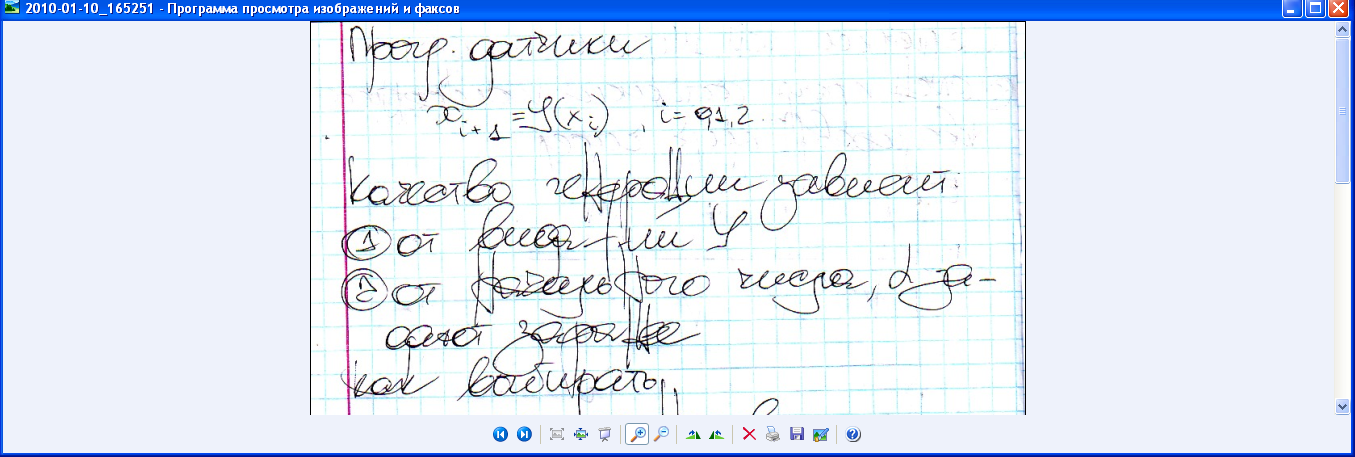 2010-01-10_165251 - Программа просмотра изображений и факсов
Прогр. датчики
x_{i+1} = φ(x_i), i = 0,1,2...
Качество генерации зависит:
① от вида ф-ии φ
② от начального числа, α за-
дают заранее
как выбирать,